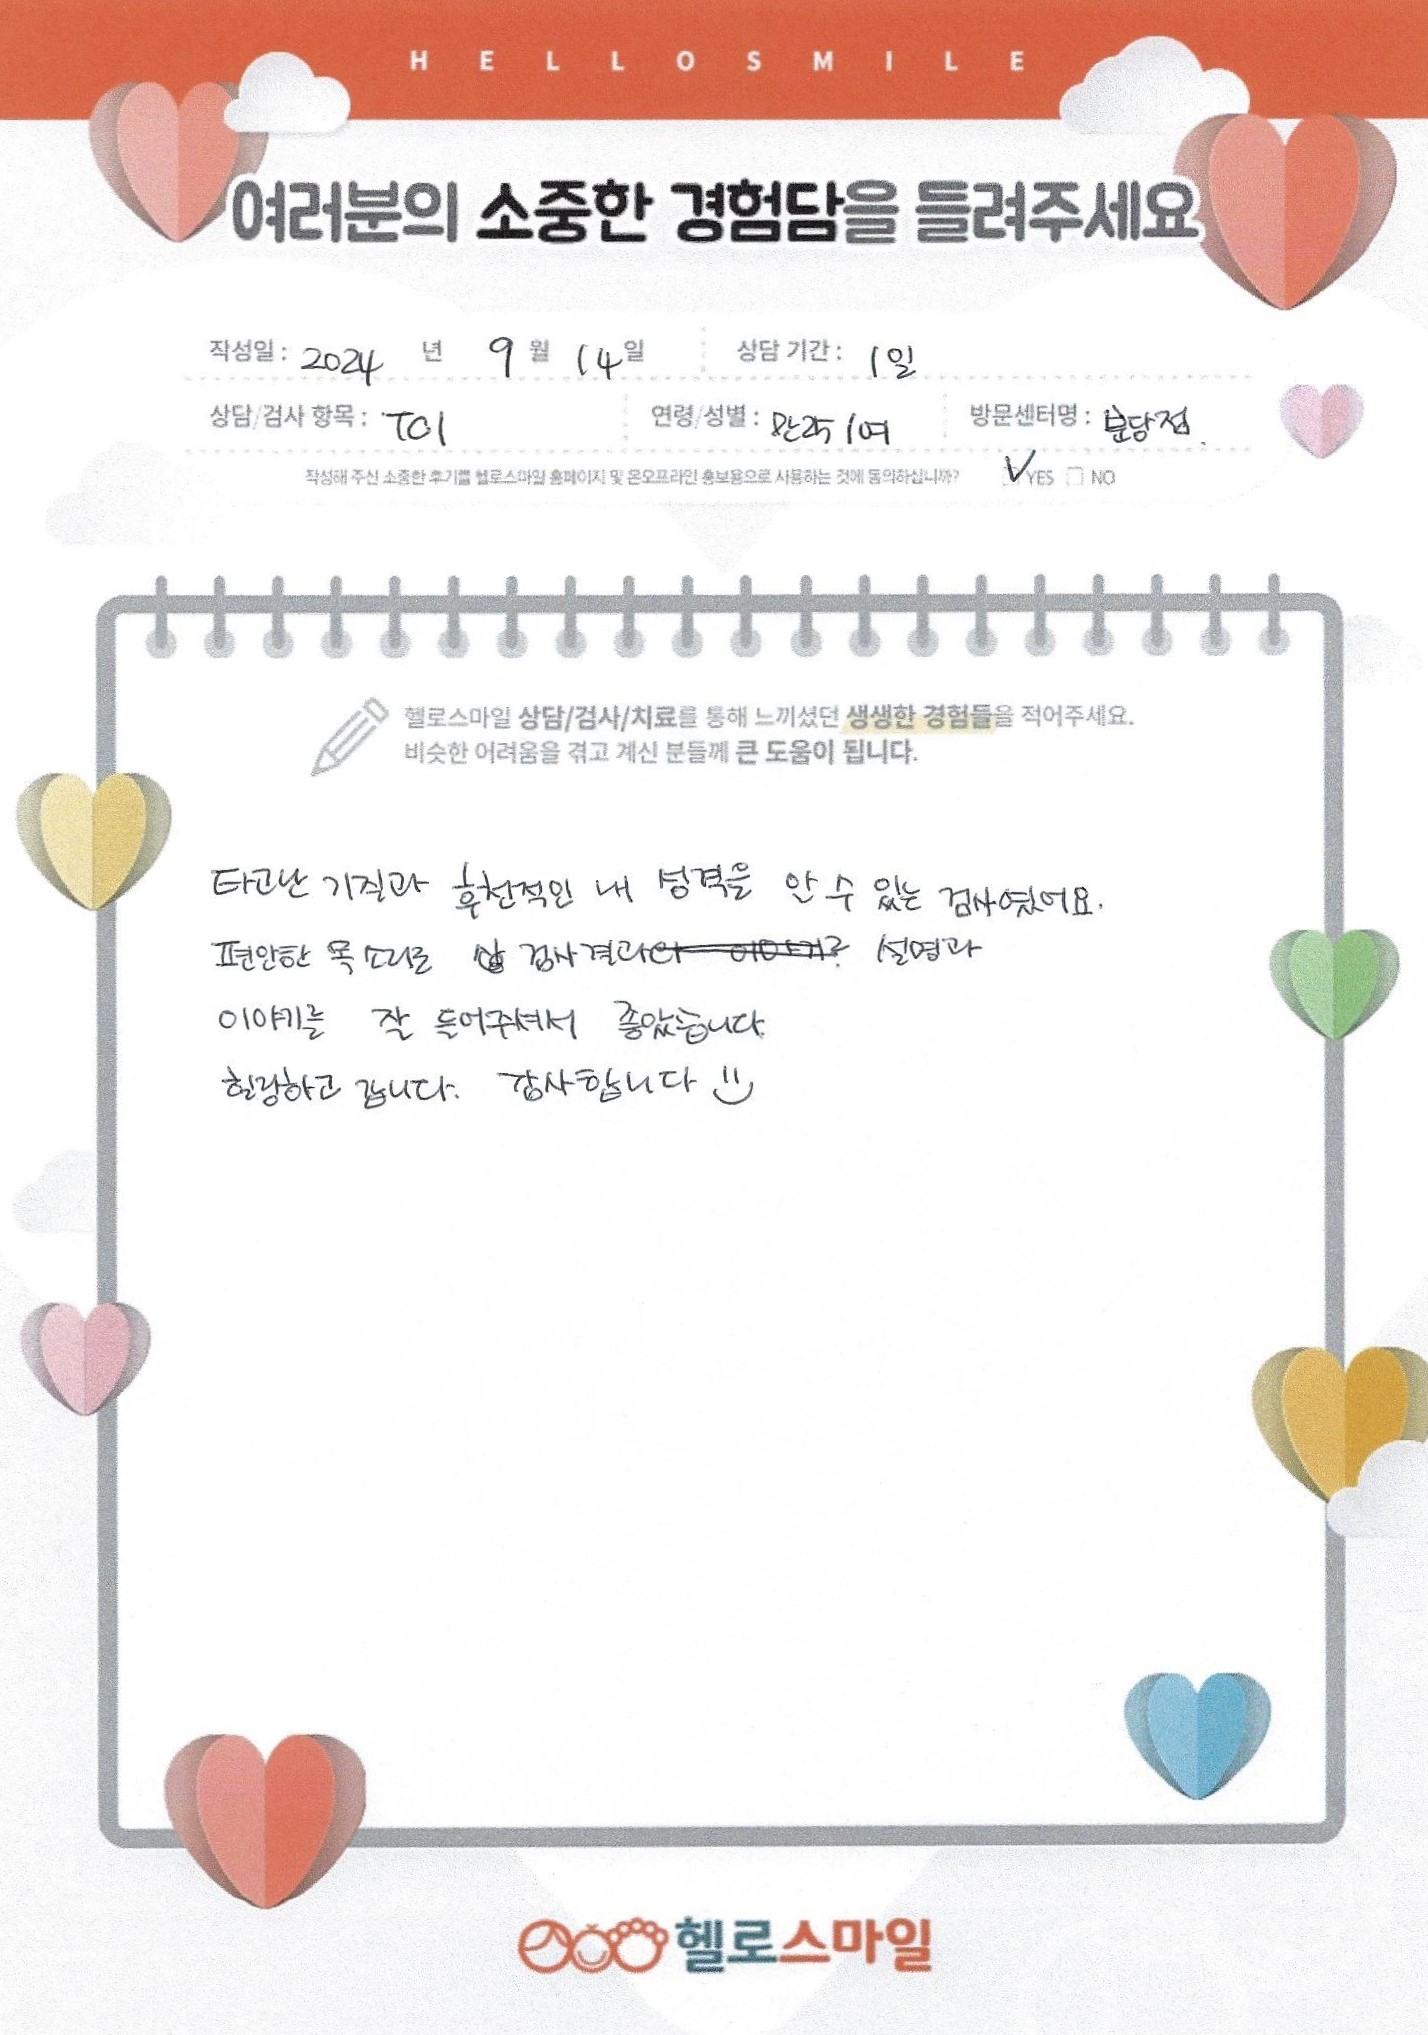 HELLOSMILE
여러분의 소중한 경험담을 들려주세요
작성일 : 2024 년 9 월 14 일 상담 기간 : 1일
상담/검사 항목 : TCI 연령/성별 : 만25 / 여 방문센터명 : 분당점.
작성해 주신 소중한 후기를 헬로스마일 홈페이지 및 온오프라인 홍보용으로 사용하는 것에 동의하십니까? YES NO
헬로스마일 상담/검사/치료를 통해 느끼셨던 생생한 경험들을 적어주세요.
비슷한 어려움을 겪고 계신 분들께 큰 도움이 됩니다.
타고난 기질과 후천적인 내 성격을 안 수 있는 검사였어요.
편안한 목소리로 검사결과 설명과
이야기를 잘 들어주셔서 좋았습니다.
힐링하고 갑니다. 감사합니다
헬로스마일